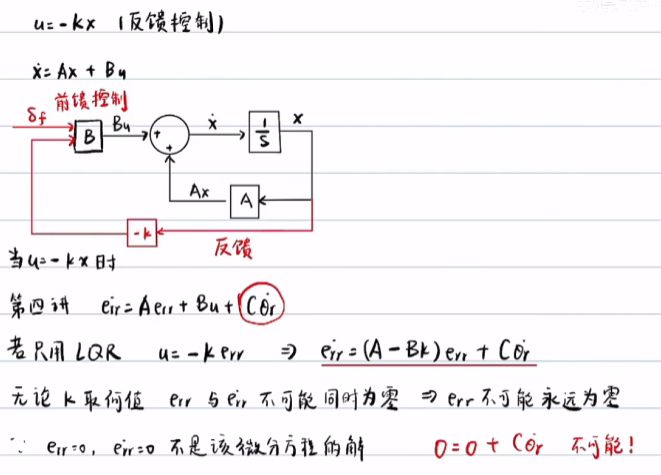 u=-kx (反馈控制)
ẋ=Ax+Bu
前馈控制
δf
B
Bu
+
+
ẋ
1/S
x
Ax
A
-k
反馈
当u=-kx时
第四讲 ėrr=Aerr+Bu+Cθ̇r
若只用LQR u=-kerr ⇒ ėrr=(A-Bk)err+Cθ̇r
无论k取何值 err与ėrr不可能同时为零 ⇒ err不可能永远为零
∵ err=0, ėrr=0 不是该微分方程的解 0=0+Cθ̇r 不可能!